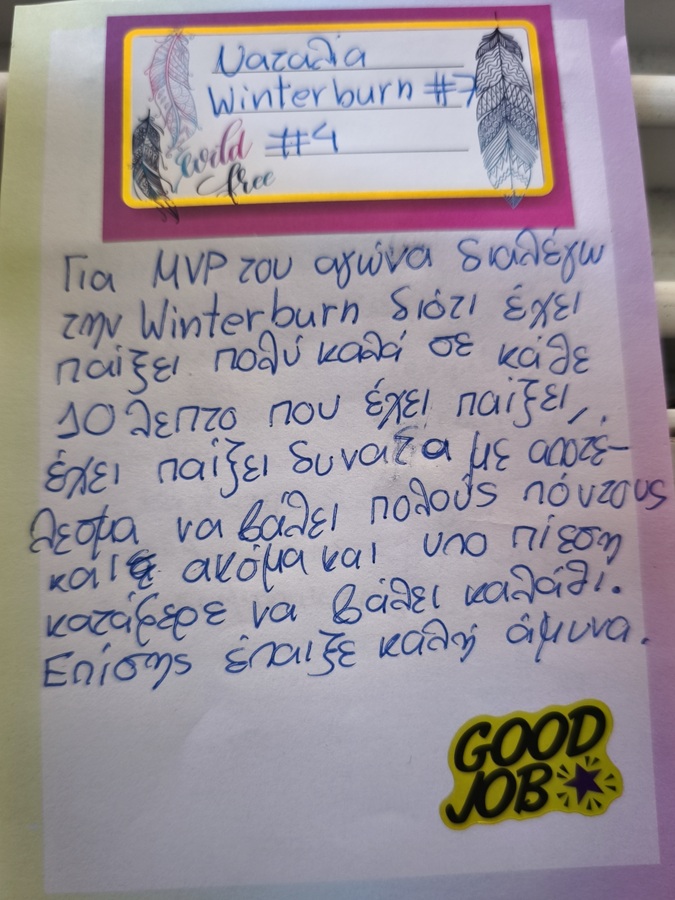 Ναταλία
Winterburn #7
#4
wild
free
Για MVP του αγώνα διαλέγω
την Winterburn διότι έχει
παίξει πολύ καλά σε κάθε
10λεπτο που έχει παίξει,
έχει παίξει δυνατά με αποτέ-
λεσμα να βάλει πολούς πόντους
και ακόμα και υπο πίεση
κατάφερε να βάλει καλάθι.
Επίσης έπαιξε καλή άμυνα.
GOOD
JOB